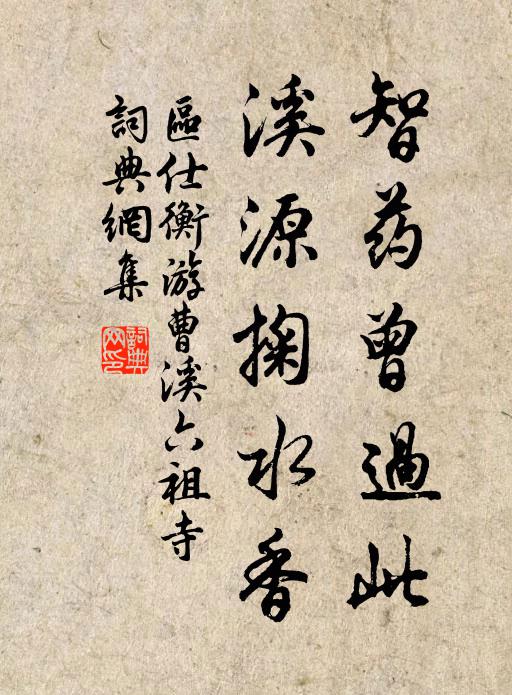 智药曾過此
溪源掬水香
區仕衡游曹溪六祖寺
詞典網集
詞典
网印